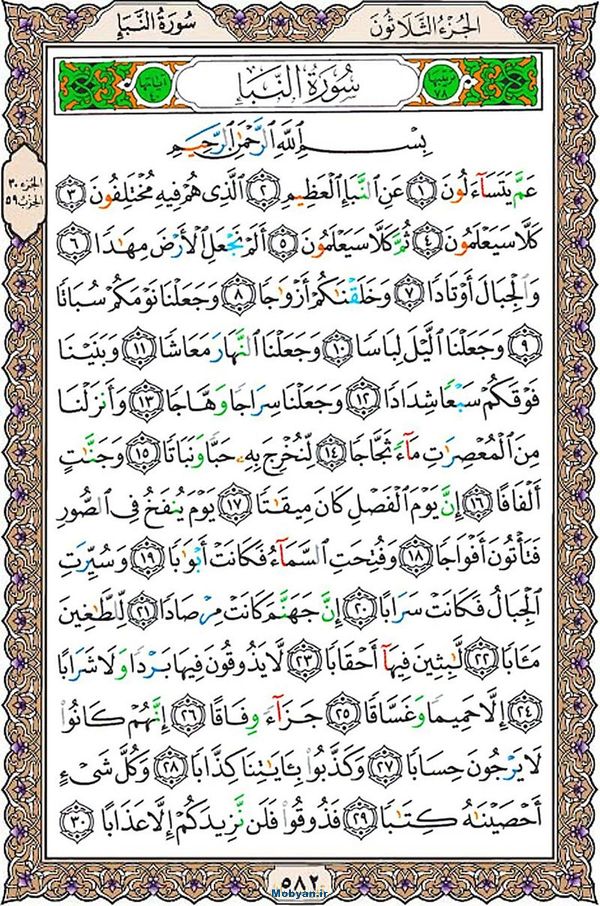 الجُزءُ الثَّلاثُونَ
سُورَةُ النَّبَإِ
ترتيبها ٧٨
سُورَةُ النَّبَإِ
آياتها
الجزء ٣٠
الحزب ٥٩
بِسْمِ ٱللَّهِ ٱلرَّحْمَٰنِ ٱلرَّحِيمِ
عَمَّ يَتَسَآءَلُونَ ١ عَنِ ٱلنَّبَإِ ٱلْعَظِيمِ ٢ ٱلَّذِى هُمْ فِيهِ مُخْتَلِفُونَ ٣
كَلَّا سَيَعْلَمُونَ ٤ ثُمَّ كَلَّا سَيَعْلَمُونَ ٥ أَلَمْ نَجْعَلِ ٱلْأَرْضَ مِهَٰدًا ٦
وَٱلْجِبَالَ أَوْتَادًا ٧ وَخَلَقْنَٰكُمْ أَزْوَٰجًا ٨ وَجَعَلْنَا نَوْمَكُمْ سُبَاتًا
٩ وَجَعَلْنَا ٱلَّيْلَ لِبَاسًا ١٠ وَجَعَلْنَا ٱلنَّهَارَ مَعَاشًا ١١ وَبَنَيْنَا
فَوْقَكُمْ سَبْعًا شِدَادًا ١٢ وَجَعَلْنَا سِرَاجًا وَهَّاجًا ١٣ وَأَنزَلْنَا
مِنَ ٱلْمُعْصِرَٰتِ مَآءً ثَجَّاجًا ١٤ لِّنُخْرِجَ بِهِۦ حَبًّا وَنَبَاتًا ١٥ وَجَنَّٰتٍ
أَلْفَافًا ١٦ إِنَّ يَوْمَ ٱلْفَصْلِ كَانَ مِيقَٰتًا ١٧ يَوْمَ يُنفَخُ فِى ٱلصُّورِ
فَتَأْتُونَ أَفْوَاجًا ١٨ وَفُتِحَتِ ٱلسَّمَآءُ فَكَانَتْ أَبْوَٰبًا ١٩ وَسُيِّرَتِ
ٱلْجِبَالُ فَكَانَتْ سَرَابًا ٢٠ إِنَّ جَهَنَّمَ كَانَتْ مِرْصَادًا ٢١ لِّلطَّٰغِينَ
مَـَٔابًا ٢٢ لَّٰبِثِينَ فِيهَآ أَحْقَابًا ٢٣ لَّا يَذُوقُونَ فِيهَا بَرْدًا وَلَا شَرَابًا
٢٤ إِلَّا حَمِيمًا وَغَسَّاقًا ٢٥ جَزَآءً وِفَاقًا ٢٦ إِنَّهُمْ كَانُوا۟
لَا يَرْجُونَ حِسَابًا ٢٧ وَكَذَّبُوا۟ بِـَٔايَٰتِنَا كِذَّابًا ٢٨ وَكُلَّ شَىْءٍ
أَحْصَيْنَٰهُ كِتَٰبًا ٢٩ فَذُوقُوا۟ فَلَن نَّزِيدَكُمْ إِلَّا عَذَابًا ٣٠
٥٨٢
Mobyan.ir